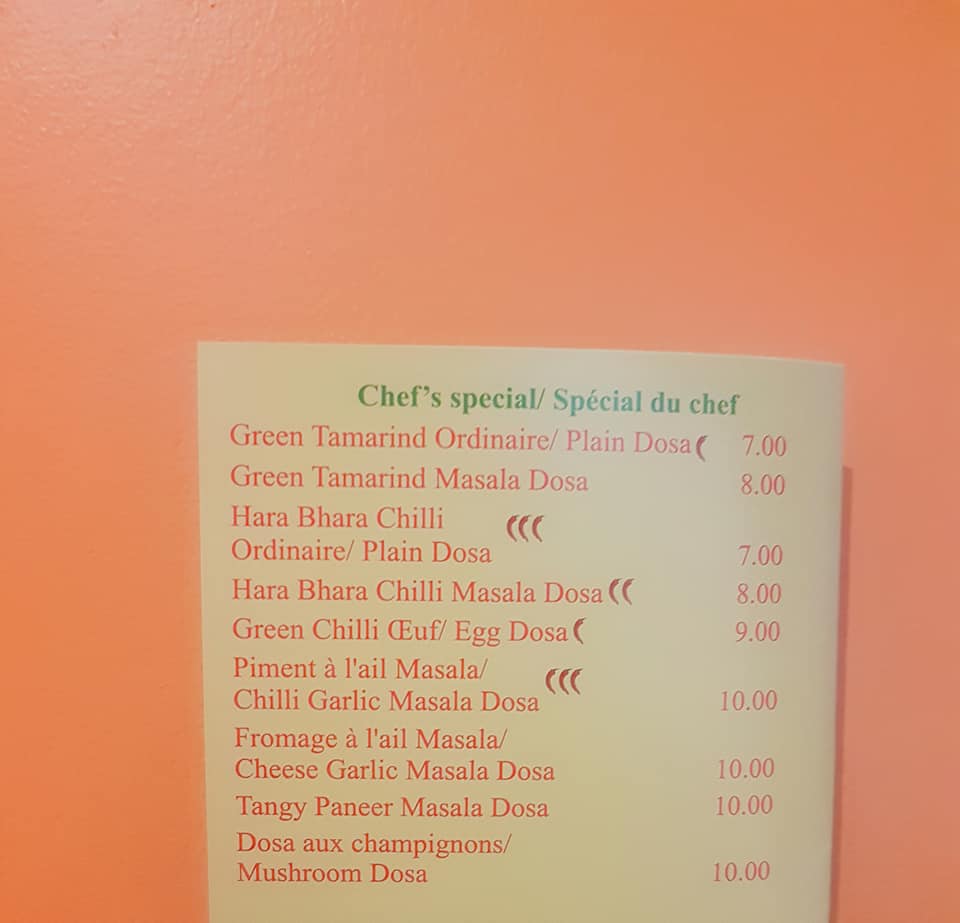 Chef's special/ Spécial du chef
Green Tamarind Ordinaire/ Plain Dosa 7.00
Green Tamarind Masala Dosa 8.00
Hara Bhara Chilli
Ordinaire/ Plain Dosa 7.00
Hara Bhara Chilli Masala Dosa 8.00
Green Chilli Œuf/ Egg Dosa 9.00
Piment à l'ail Masala/
Chilli Garlic Masala Dosa 10.00
Fromage à l'ail Masala/
Cheese Garlic Masala Dosa 10.00
Tangy Paneer Masala Dosa 10.00
Dosa aux champignons/
Mushroom Dosa 10.00